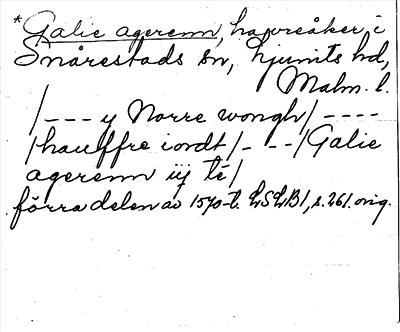 *Galie agerenn, havreåker, i
Snårestads sn, Ljunits hd,
Malm. l.
/ - - - y Norre wongh / - - - -
/ hauffre iordt / - - - / Galie
agerenn iij té /
förra delen av 1570-t. LSLB1, s. 261. orig.